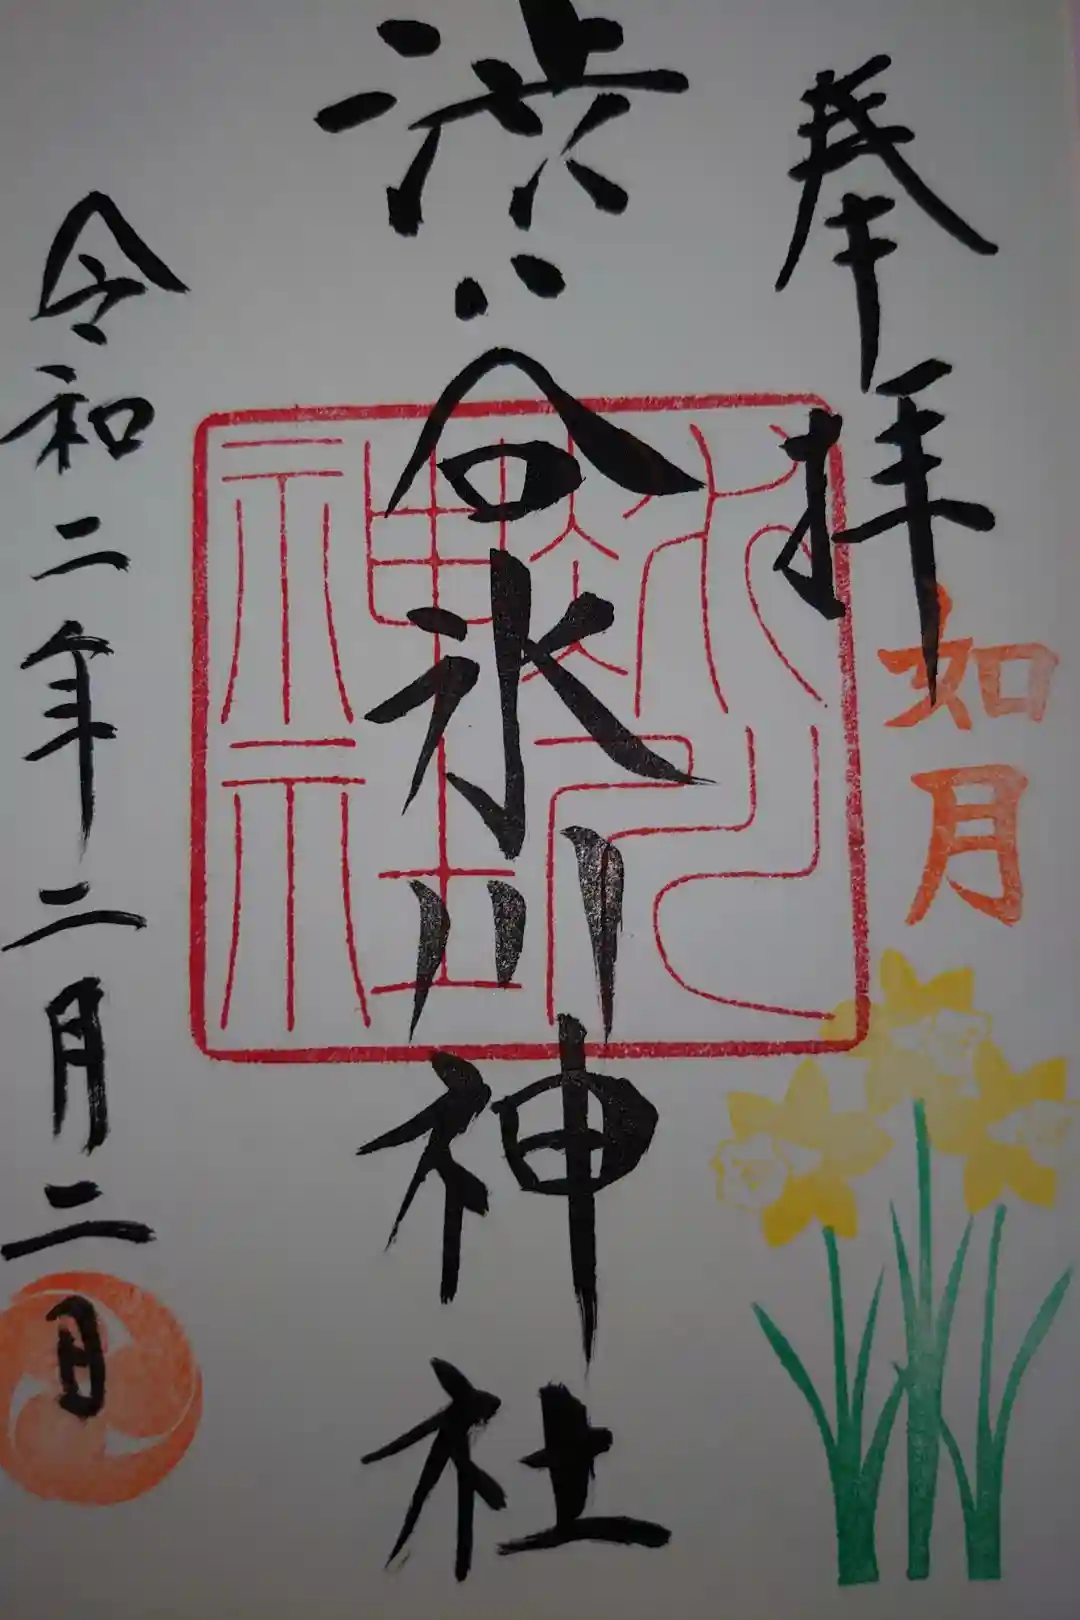 奉拝
如月
渋谷氷川神社
氷川神社
令和二年二月二日